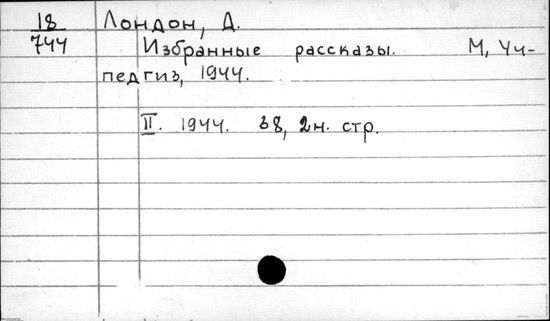 18
744
Лондон, Д.
Избранные рассказы. М, Уч-
педгиз, 1944.
II. 1944. 38, 2н. стр.